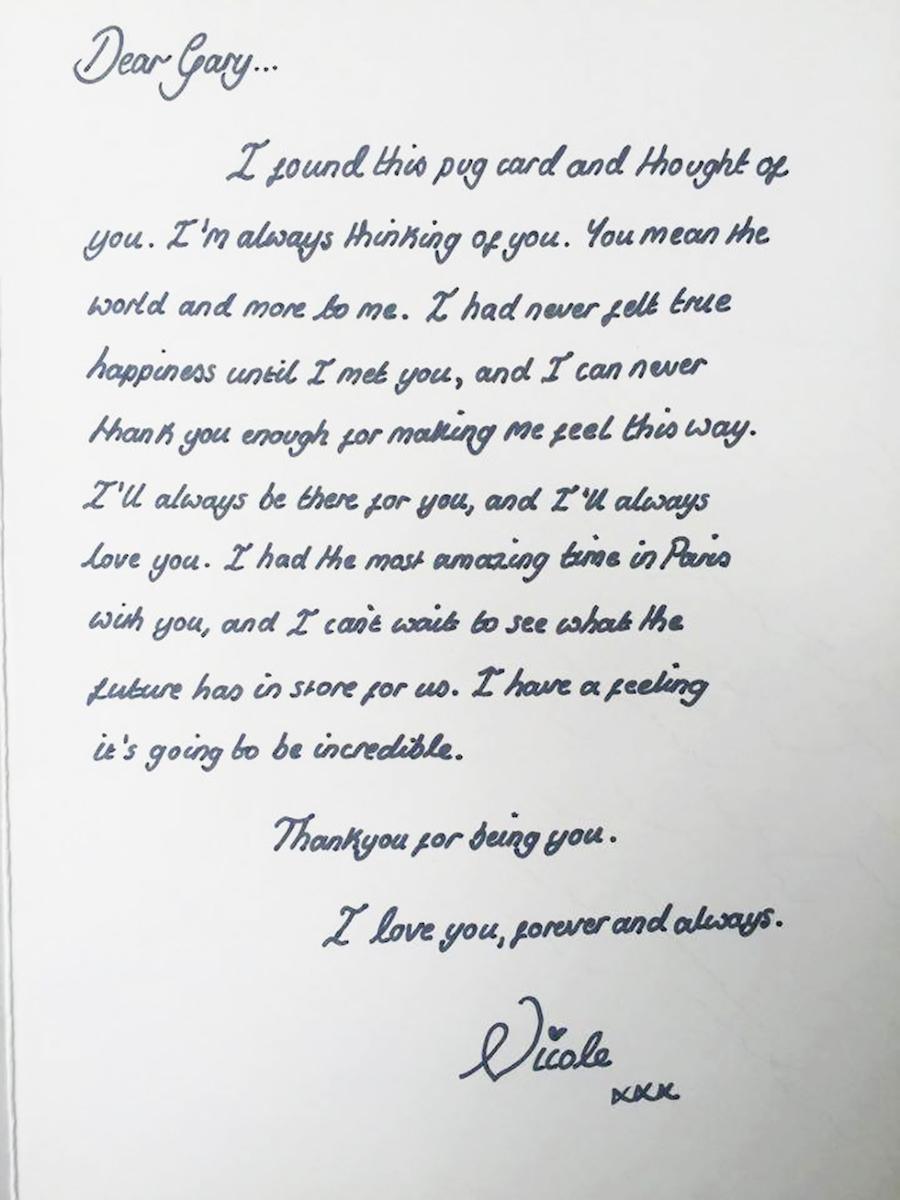 Dear Gary...
I found this pug card and thought of
you. I'm always thinking of you. You mean the
world and more to me. I had never felt true
happiness until I met you, and I can never
thank you enough for making me feel this way.
I'll always be there for you, and I'll always
love you. I had the most amazing time in Paris
with you, and I can't wait to see what the
future has in store for us. I have a feeling
it's going to be incredible.
Thankyou for being you.
I love you, forever and always.
Nicole
xxx